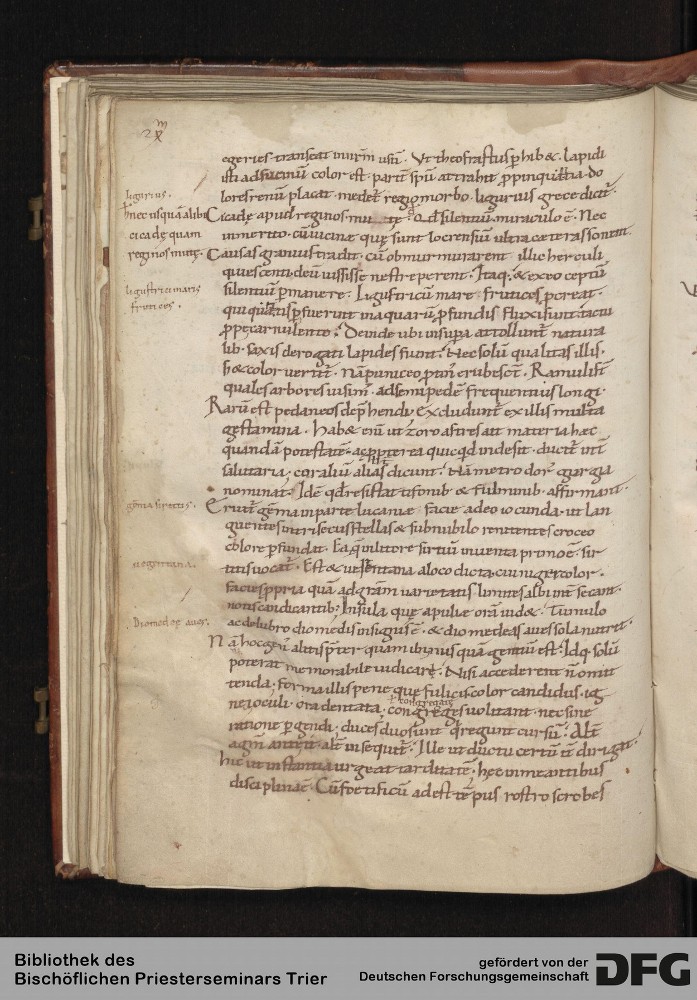 egeries transeat in urinā usū. Ut theofrastus phib&. lapidi
isti ad sucinū color est. parit spū attrahit ppinquātia. do
lores renū placat. medet regio morbo. ligurius grece dicit.
Cicadę apud reginos mu tę. & qđ silentiū miraculo ē. Nec
inmerito. cū uicinae quę sunt locrensiū ultra caeteras sonent.
Causas granius tradit. cū obmurmurarent illic herculi
quiescenti. deū iussisse ne streperent. Itaq; & ex eo ceptū
silentiū pmanere. Ligusticū mare frutices pcreat.
qui quātisp fuerint in aquarū pfundis. fluxi sunt. tactu
ppe carnulento. Deinde ubi in supa attollunt. natura
lib. saxis derogati lapides fiunt. Nec solū qualitas illis.
s& color vertit. Nā puniceo ptin erubesct. Ramuli st
quales arbores uisim. ad semipedē frequentius longi.
Rarū est pedaneos dephendi. Excludunt ex illis multa
gestamina. Hab& eni ut zoroastres ait materia haec
quandā potestatē. ac ppterea quicqd inde sit. ducit int
salutaria. coraliū alias dicunt. Nā metrodor gorgia
nominat. Idē qđ resistat tifonib & fulminib. affirmant.
Eruit gēma in parte lucaniae. facie adeo iocunda. ut lan
guentes intrisecus stellas & subnubilo renitentes croceo
colore pfundat. Ea qm in litore sirtiū inuenta primo ē. sir
titis uocat. Est & ueientana a loco dicta, cui niger color.
facies ppria quā ad grām uarietatis limites albi int secant.
notis candicantib; Insula quę apuliae orā uid&. Tumulo
ac delubro diomedis insignis ē. & diomedeas aues sola nutrit.
Nā hoc gen alitis pter quam ibi nusquā gentiū est. Idq. solū
poterat memorabile iudicarę. Nisi accederent ñ omitt
tenda. forma illis pene quę fulicis. color candidus. ig
nei oculi. ora dentata.
congregatę
congreges uolitant. nec sine
ratione pgendi. duces duo sunt q regunt cursū. Alt
agm anteit. alt insequit. Ille ut ductu certū it dirigat.
hic ut instantia urgeat tarditatē. hęc in meantibus
disciplinaē. Cū foetificū adest tēpus rostro scrobes
ligurius.
nec usquā alibi
cicadę quam
reginos mutę.
ligustici maris
frutices.
gēma sirtitis.
uegentana.
Diomedęę aues.
Bibliothek des
Bischöflichen Priesterseminars Trier
gefördert von der
Deutschen Forschungsgemeinschaft
DFG